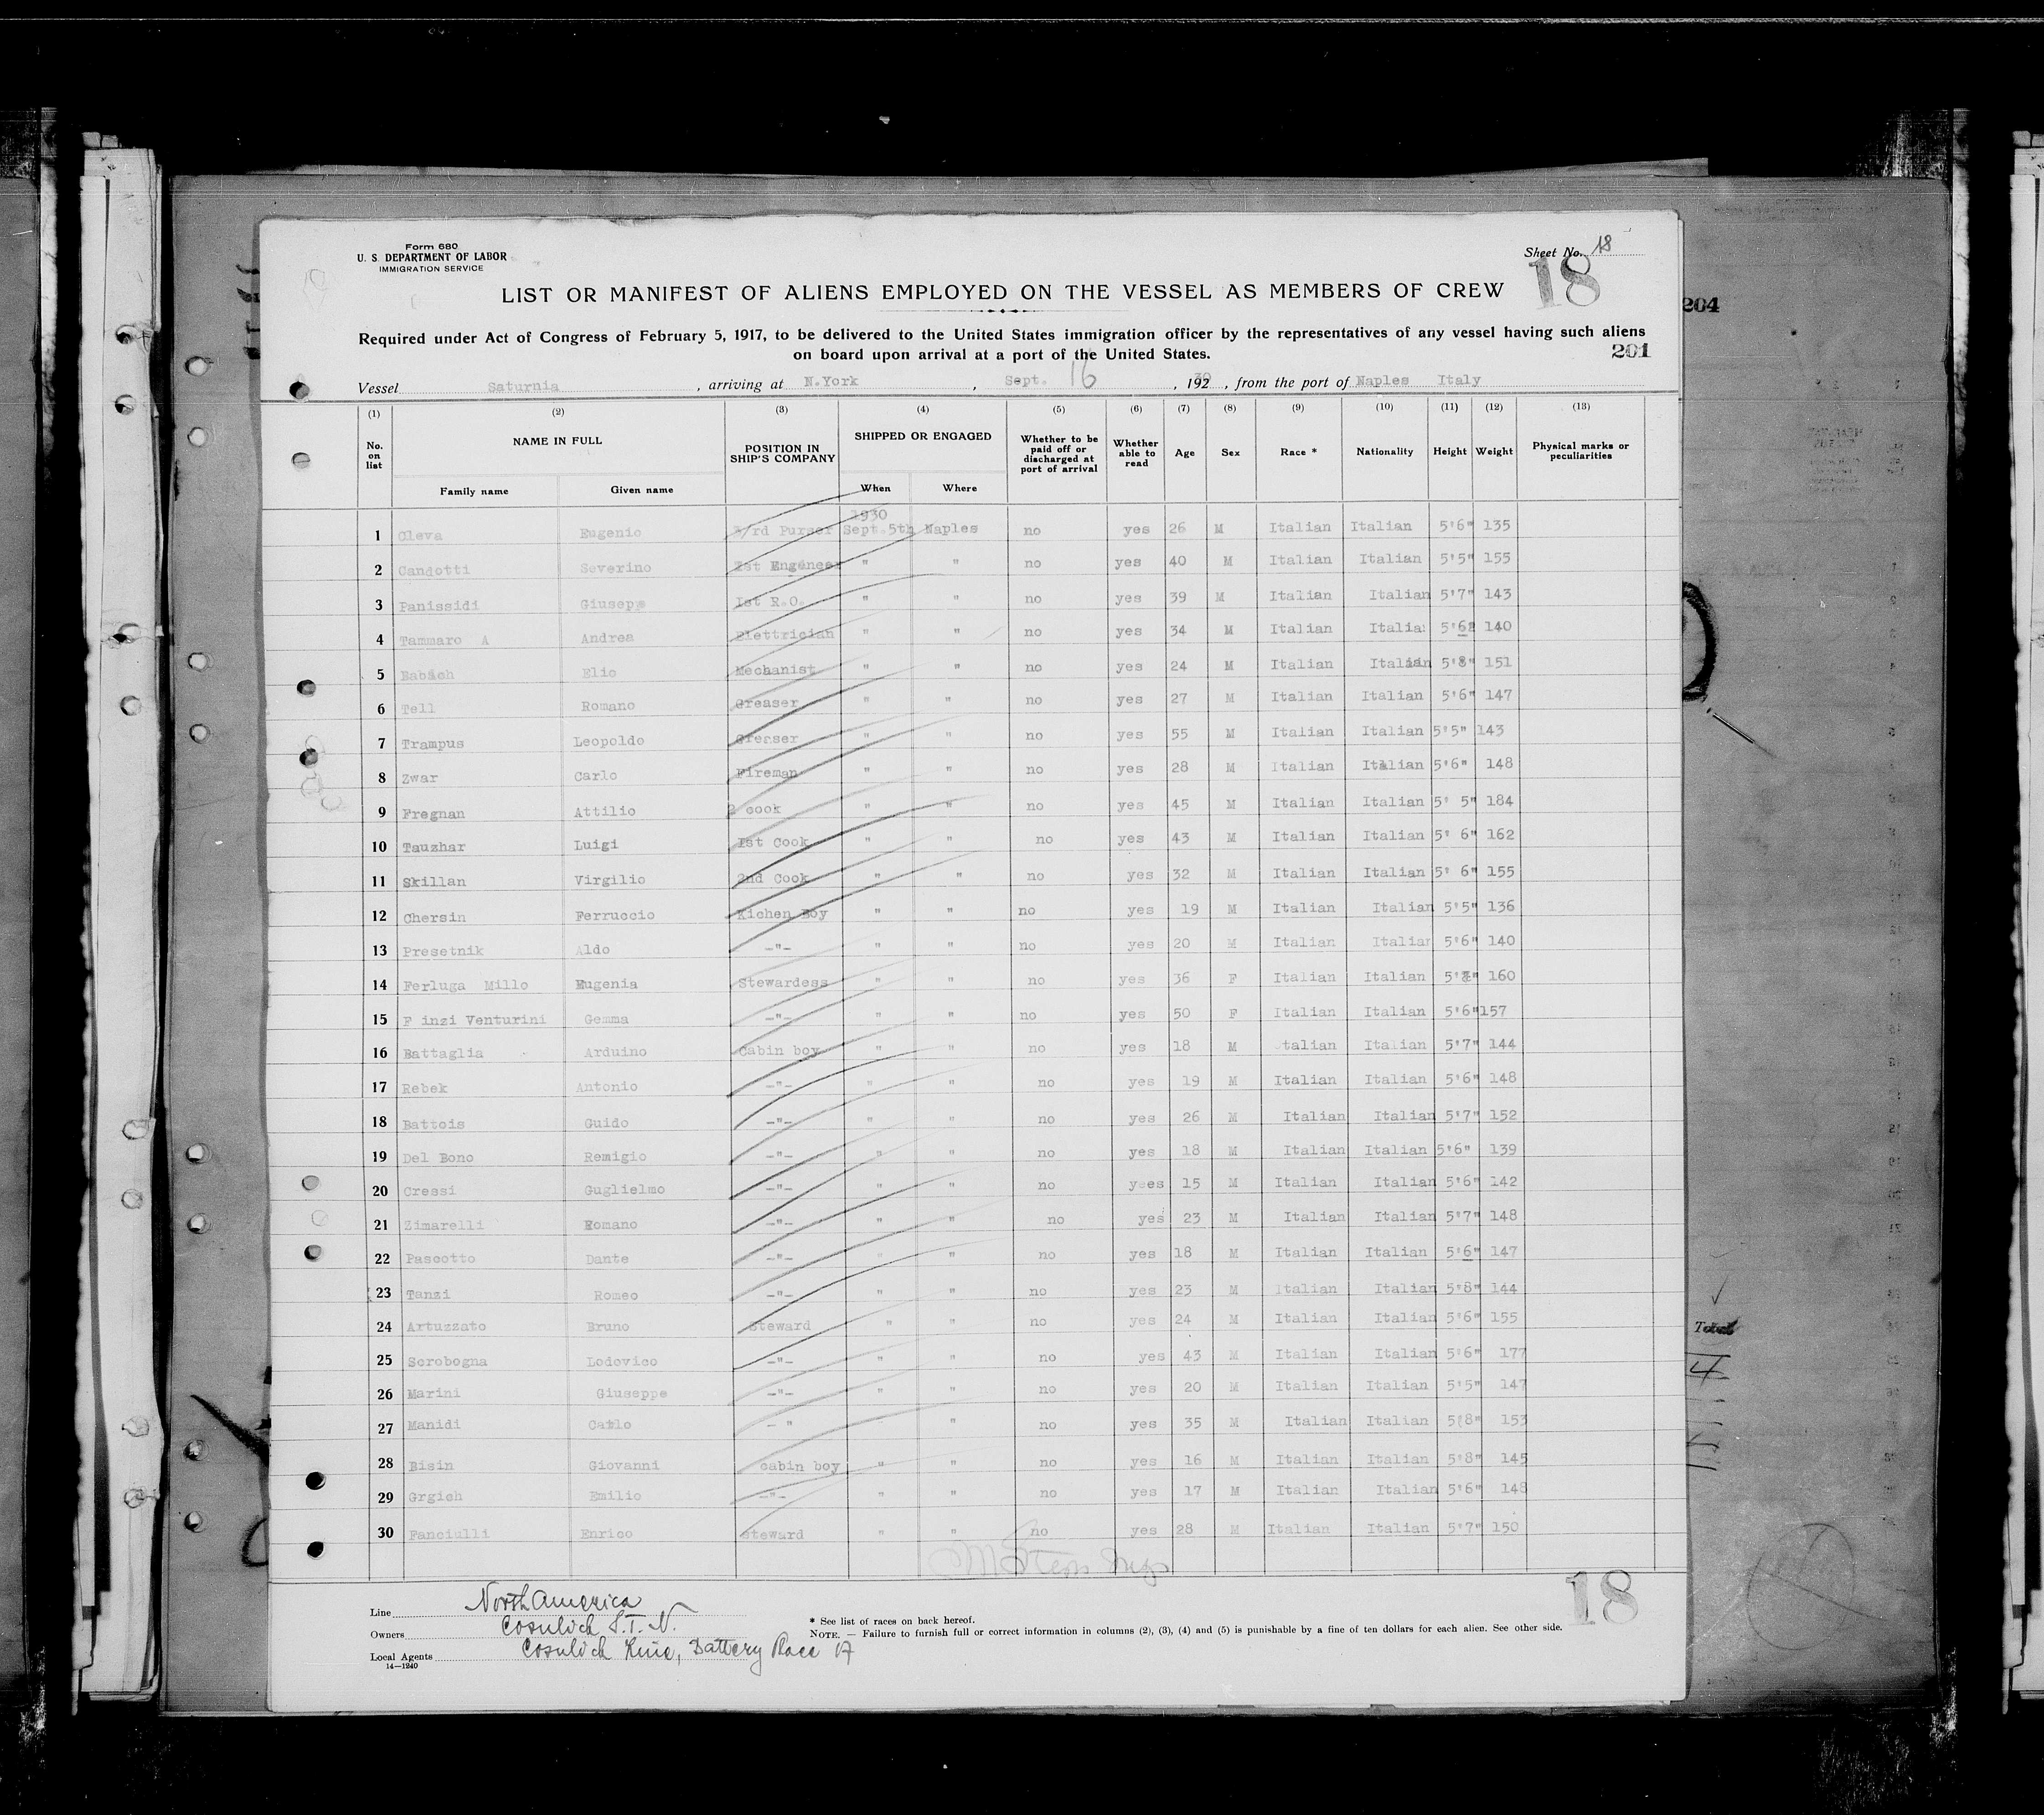 Form 680
U. S. DEPARTMENT OF LABOR
IMMIGRATION SERVICE
Sheet No. 18
18
LIST OR MANIFEST OF ALIENS EMPLOYED ON THE VESSEL AS MEMBERS OF CREW
204
Required under Act of Congress of February 5, 1917, to be delivered to the United States immigration officer by the representatives of any vessel having such aliens
on board upon arrival at a port of the United States.
201
Vessel Saturnia , arriving at N.York , Sept. 16 , 19230 , from the port of Naples Italy
(1) (2) (3) (4) (5) (6) (7) (8) (9) (10) (11) (12) (13)
No. on list NAME IN FULL POSITION IN SHIP'S COMPANY SHIPPED OR ENGAGED Whether to be paid off or discharged at port of arrival Whether able to read Age Sex Race * Nationality Height Weight Physical marks or peculiarities
Family name Given name When Where
1930
1 Cleva Eugenio 3/rd Purser Sept.5th Naples no yes 26 M Italian Italian 5'6" 135
2 Candotti Severino Ist Engeneer " " no yes 40 M Italian Italian 5'5" 155
3 Panissidi Giusepp Ist R.O. " " no yes 39 M Italian Italian 5'7" 143
4 Tammaro A Andrea Elettrician " " no yes 34 M Italian Italia 5'6" 140
5 Babich Elio Mechanist " " no yes 24 M Italian Italian 5'8" 151
6 Tell Romano Greaser " " no yes 27 M Italian Italian 5'6" 147
7 Trampus Leopoldo Greaser " " no yes 55 M Italian Italian 5'5" 143
8 Zwar Carlo Fireman " " no yes 28 M Italian Italian 5'6" 148
9 Fregnan Attilio cook " " no yes 45 M Italian Italian 5' 5" 184
10 Tauzhar Luigi Ist Cook " " no yes 43 M Italian Italian 5' 6" 162
11 Skillan Virgilio 2nd Cook " " no yes 32 M Italian Italian 5' 6" 155
12 Chersin Ferruccio Kichen Boy " " no yes 19 M Italian Italian 5'5" 136
13 Presetnik Aldo -"- " " no yes 20 M Italian Italian 5'6" 140
14 Ferluga Millo Eugenia Stewardess " " no yes 36 F Italian Italian 160
15 F inzi Venturini Gemma -"- " " no yes 50 F Italian Italian 5'6" 157
16 Battaglia Arduino Cabin boy " " no yes 18 M talian Italian 5'7" 144
17 Rebek Antonio -"- " " no yes 19 M Italian Italian 5'6" 148
18 Battois Guido -"- " " no yes 26 M Italian Italian 5'7" 152
19 Del Bono Remigio -"- " " no yes 18 M Italian Italian 5'6" 139
20 Cressi Guglielmo -"- " " no yees 15 M Italian Italian 5'6" 142
21 Zimarelli Romano -"- " " no yes 23 M Italian Italian 5'7" 148
22 Pascotto Dante -"- " " no yes 18 M Italian Italian 5'6" 147
23 Tanzi Romeo -"- " " no yes 23 M Italian Italian 5'8" 144
24 Artuzzato Bruno Steward " " no yes 24 M Italian Italian 5'6" 155
25 Scrobogna Lodovico -"- " " no yes 43 M Italian Italian 5'6" 177
26 Marini Giuseppe -"- " " no yes 20 M Italian Italian 5'5" 147
27 Manidi Carlo - " " no yes 35 M Italian Italian 5(8" 153
28 Bisin Giovanni cabin boy " " no yes 16 M Italian Italian 5'8" 145
29 Grgich Emilio -"- " " no yes 17 M Italian Italian 5'6" 148
30 Fanciulli Enrico steward " " no yes 28 M Italian Italian 5'7" 150
Total
18
Line North America
Owners Cosulich S.T.N.
Local Agents Cosulich Line, Battery Place 17
14—1240
* See list of races on back hereof.
NOTE. — Failure to furnish full or correct information in columns (2), (3), (4) and (5) is punishable by a fine of ten dollars for each alien. See other side.